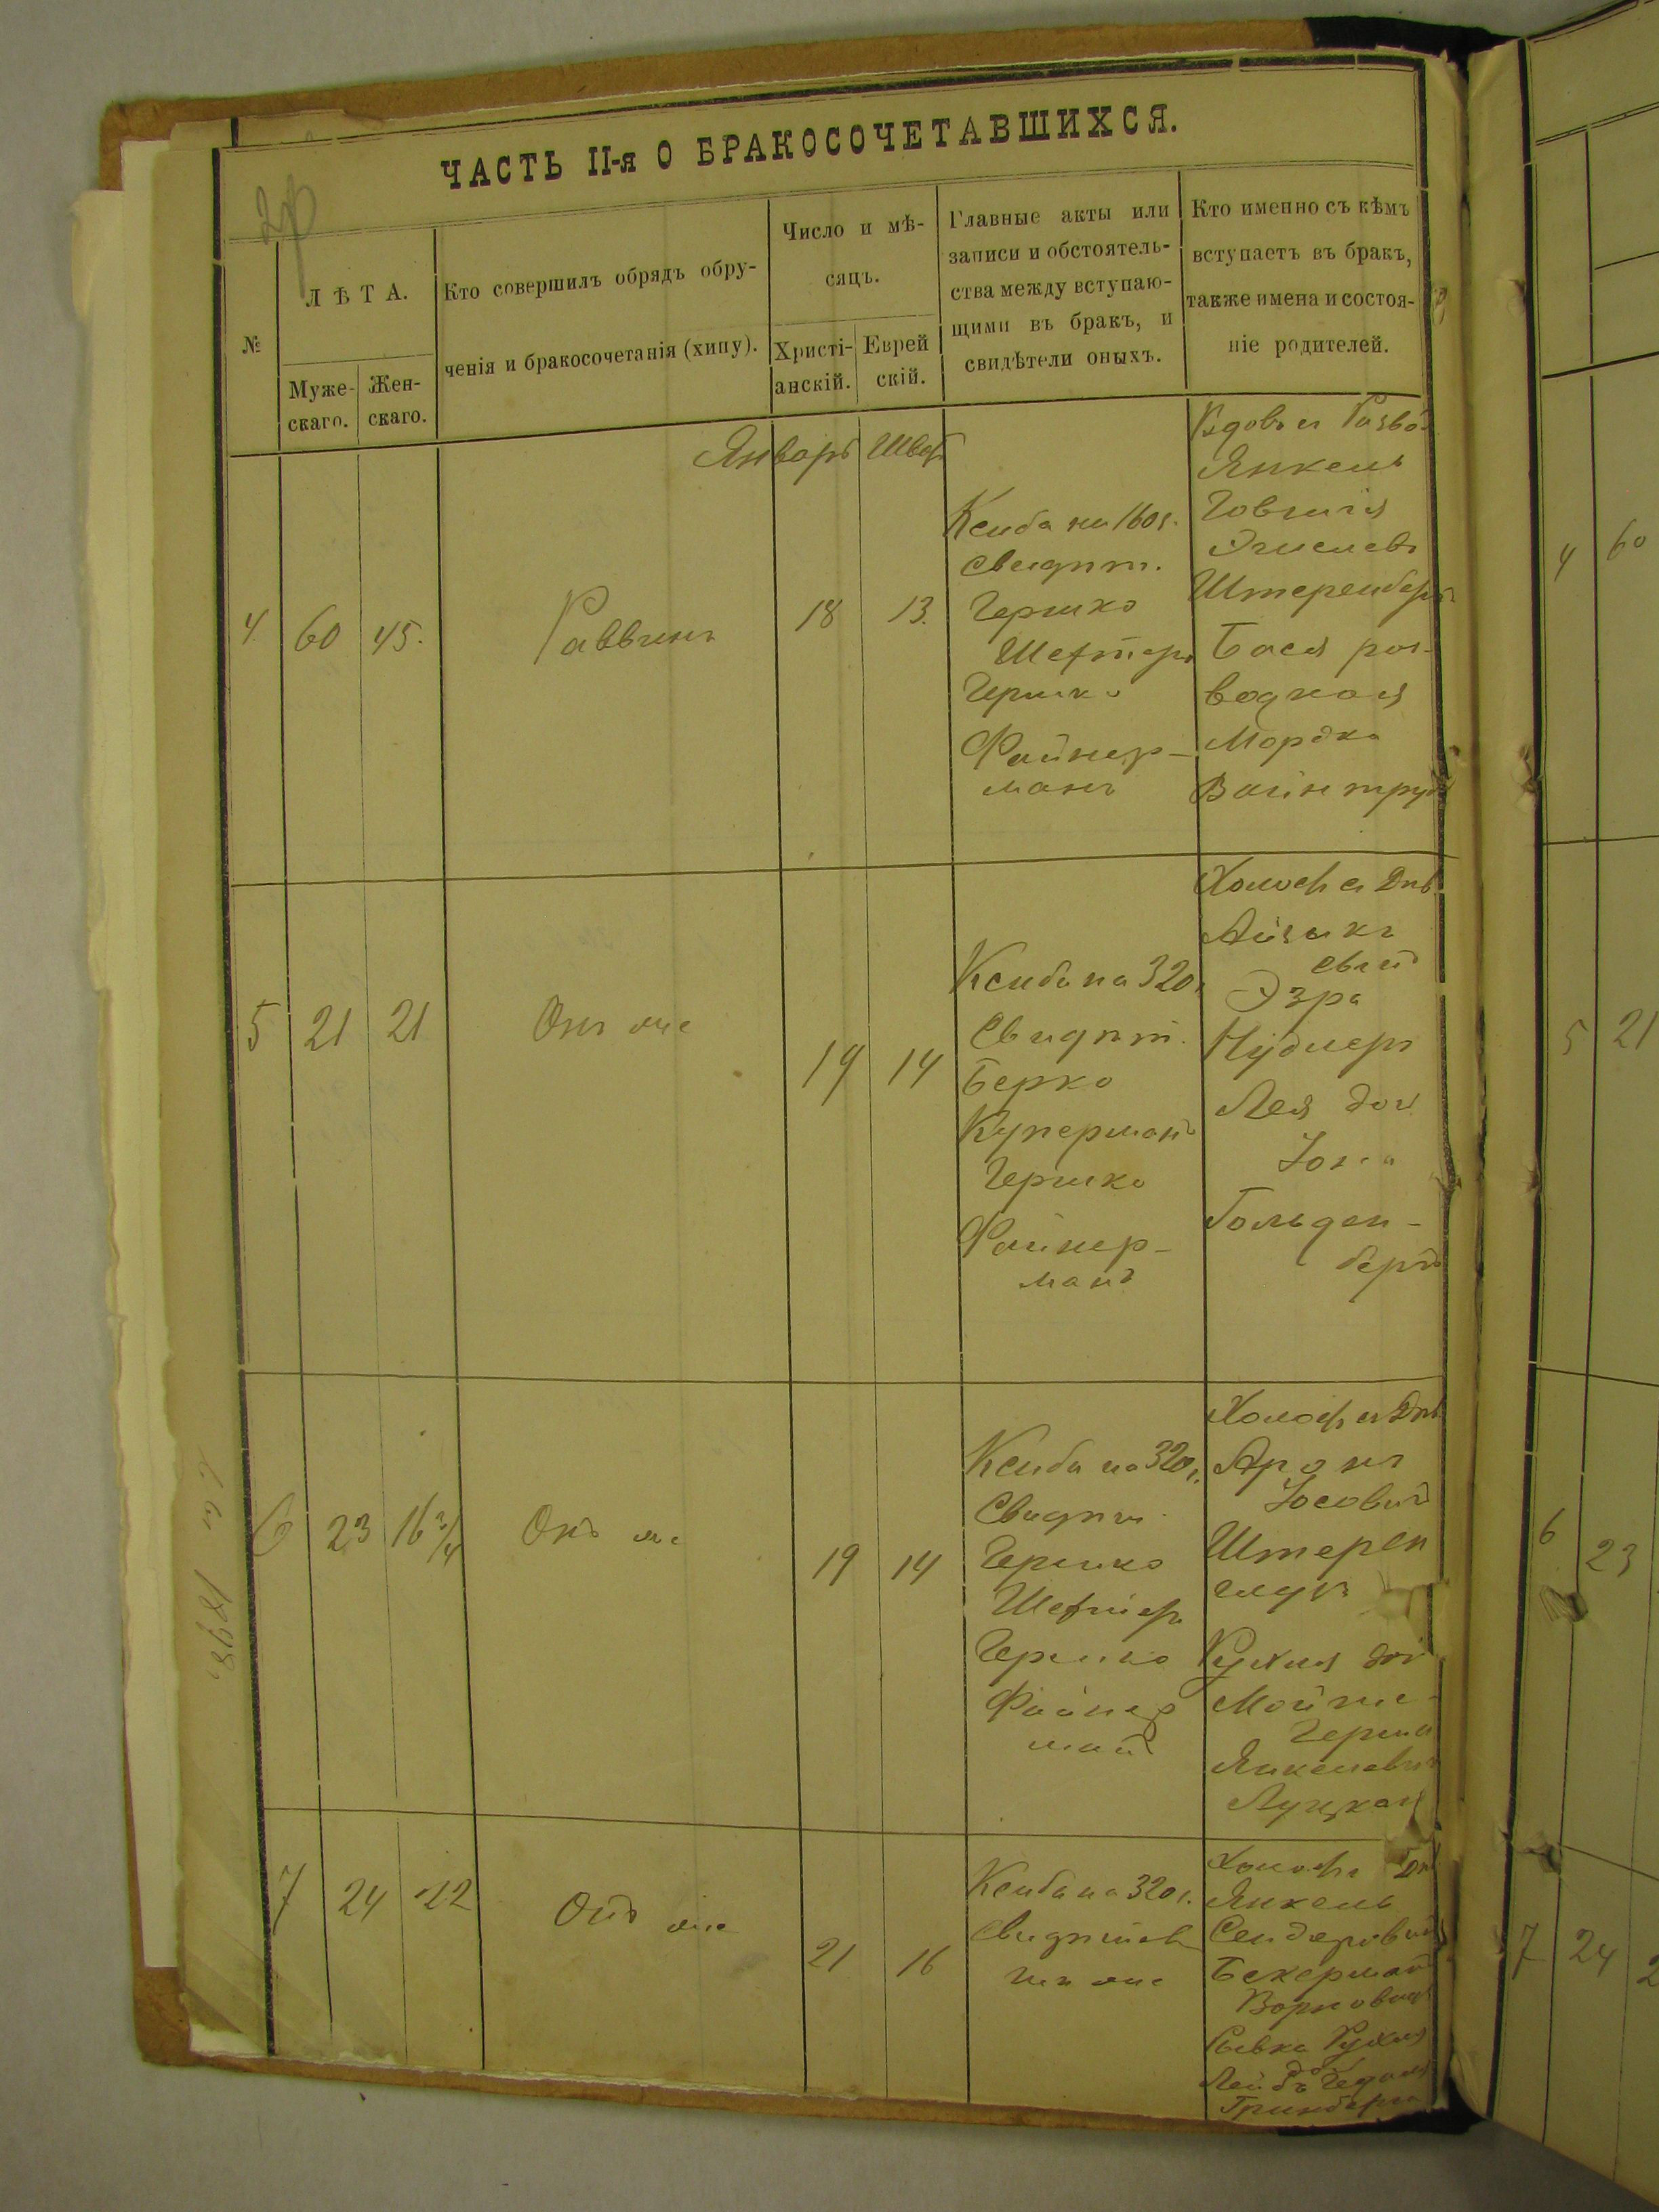 ЧАСТЬ II-я О БРАКОСОЧЕТАВШИХСЯ.
№
ЛѢТА.
Муже-
скаго.
Жен-
скаго.
Кто совершилъ обрядъ обру-
ченія и бракосочетанія (хипу).
Число и мѣ-
сяцъ.
Христі-
анскій.
Еврей
скій.
Главные акты или
записи и обстоятель-
ства между вступаю-
щими въ бракъ, и
свидѣтели оныхъ.
Кто именно съ кѣмъ
вступаетъ въ бракъ,
также имена и состоя-
ніе родителей.
Январь Шват
4
60
45.
Раввинъ
18
13.
Ксиба на 160 р.
Свидѣт.
Гершко
Шефтеръ
Гершко
Файнер-
манъ
Вдов. съ Разво.
Янкель
Штеренберг
Бася раз-
водная
Мордко
Вайнтруб
5
21
21
Онъ же
19
14
Ксиба на 320
Свидѣт.
Берко
Куперманъ
Гершко
Файнер-
манъ
Холост съ Дѣв
Айзикъ
Эзра
Нудлеръ
Лея доч
Гольден-
бергъ
6
23
16 3/4
Онъ же
19
14
Ксиба на 320 р.
Свидѣт.
Гершко
Шефтеръ
Гершко
Файнер
манъ
Холост съ Дѣв
Аронъ
Іосовичъ
Штерен
Рухля доч
Мойше-
Герша
Янкелевич
Луцкая
7
24
22
Онъ же
21
16
Ксиба на 320 р.
Свидѣтел
тѣ же
Холост Дѣв
Янкель
Сендеровичъ
Бекерманъ
Ривка Рухля
Гринберг
4
60
5
21
6
23
7
24
2